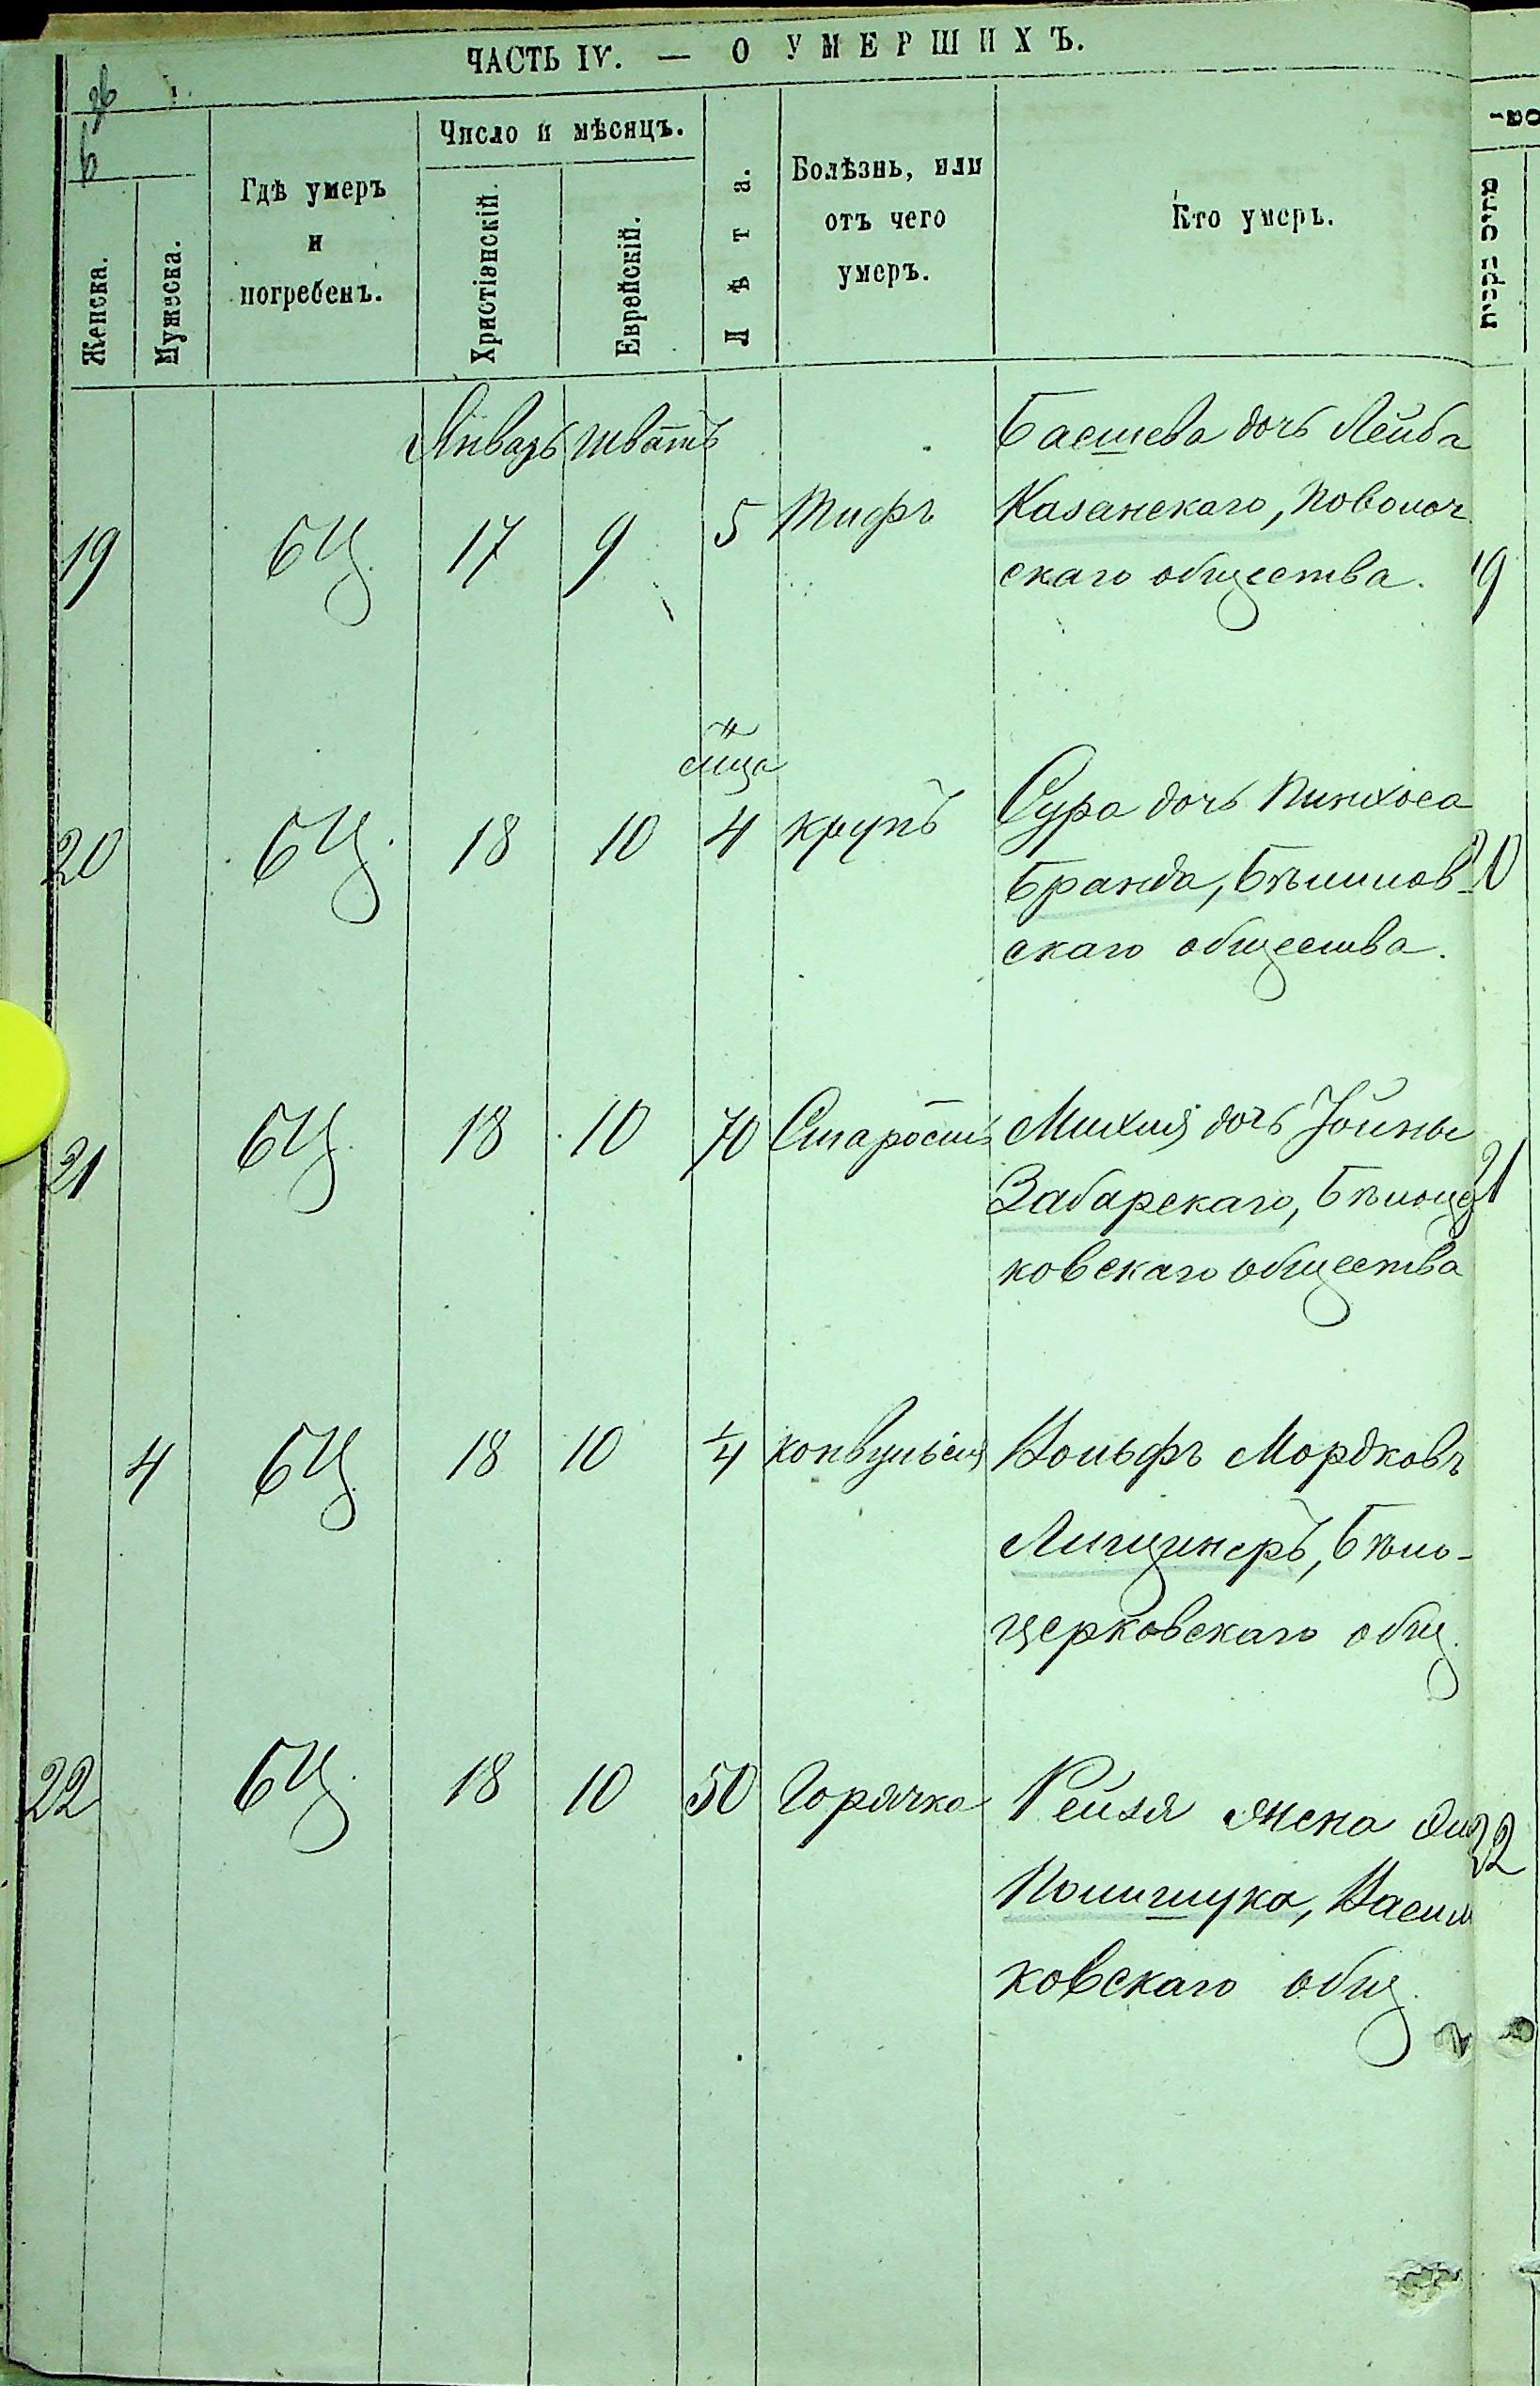 ЧАСТЬ IV. — О УМЕРШИХЪ.
Женска.
Мужеска.
Гдѣ умеръ
и
погребенъ.
Число и мѣсяцъ.
Христіанскій.
Еврейскій.
Лѣта.
Болѣзнь, или
отъ чего
умеръ.
Кто умеръ.
Январь Шватъ
Басшева дочь Лейба
19 БЦ. 17 9 5 Тифъ Казанскаго, Поволоч
скаго общества. 19
4
м-ца
20 БЦ. 18 10 4 крупъ Сура дочь Пинхоса
Бранда, Бѣлилов- 20
скаго общества.
21 БЦ. 18 10 70 Старость Михля дочь Іойны
Забарскаго, Бѣлоцер 21
ковскаго общества
4 БЦ 18 10 1/4 конвульсія Вольфъ Мордковъ
Лищинеръ, Бѣло-
церковскаго общ.
22 БЦ. 18 10 50 Горячка Рейзя жена 22
Полищука, Васил
ковскаго общ.